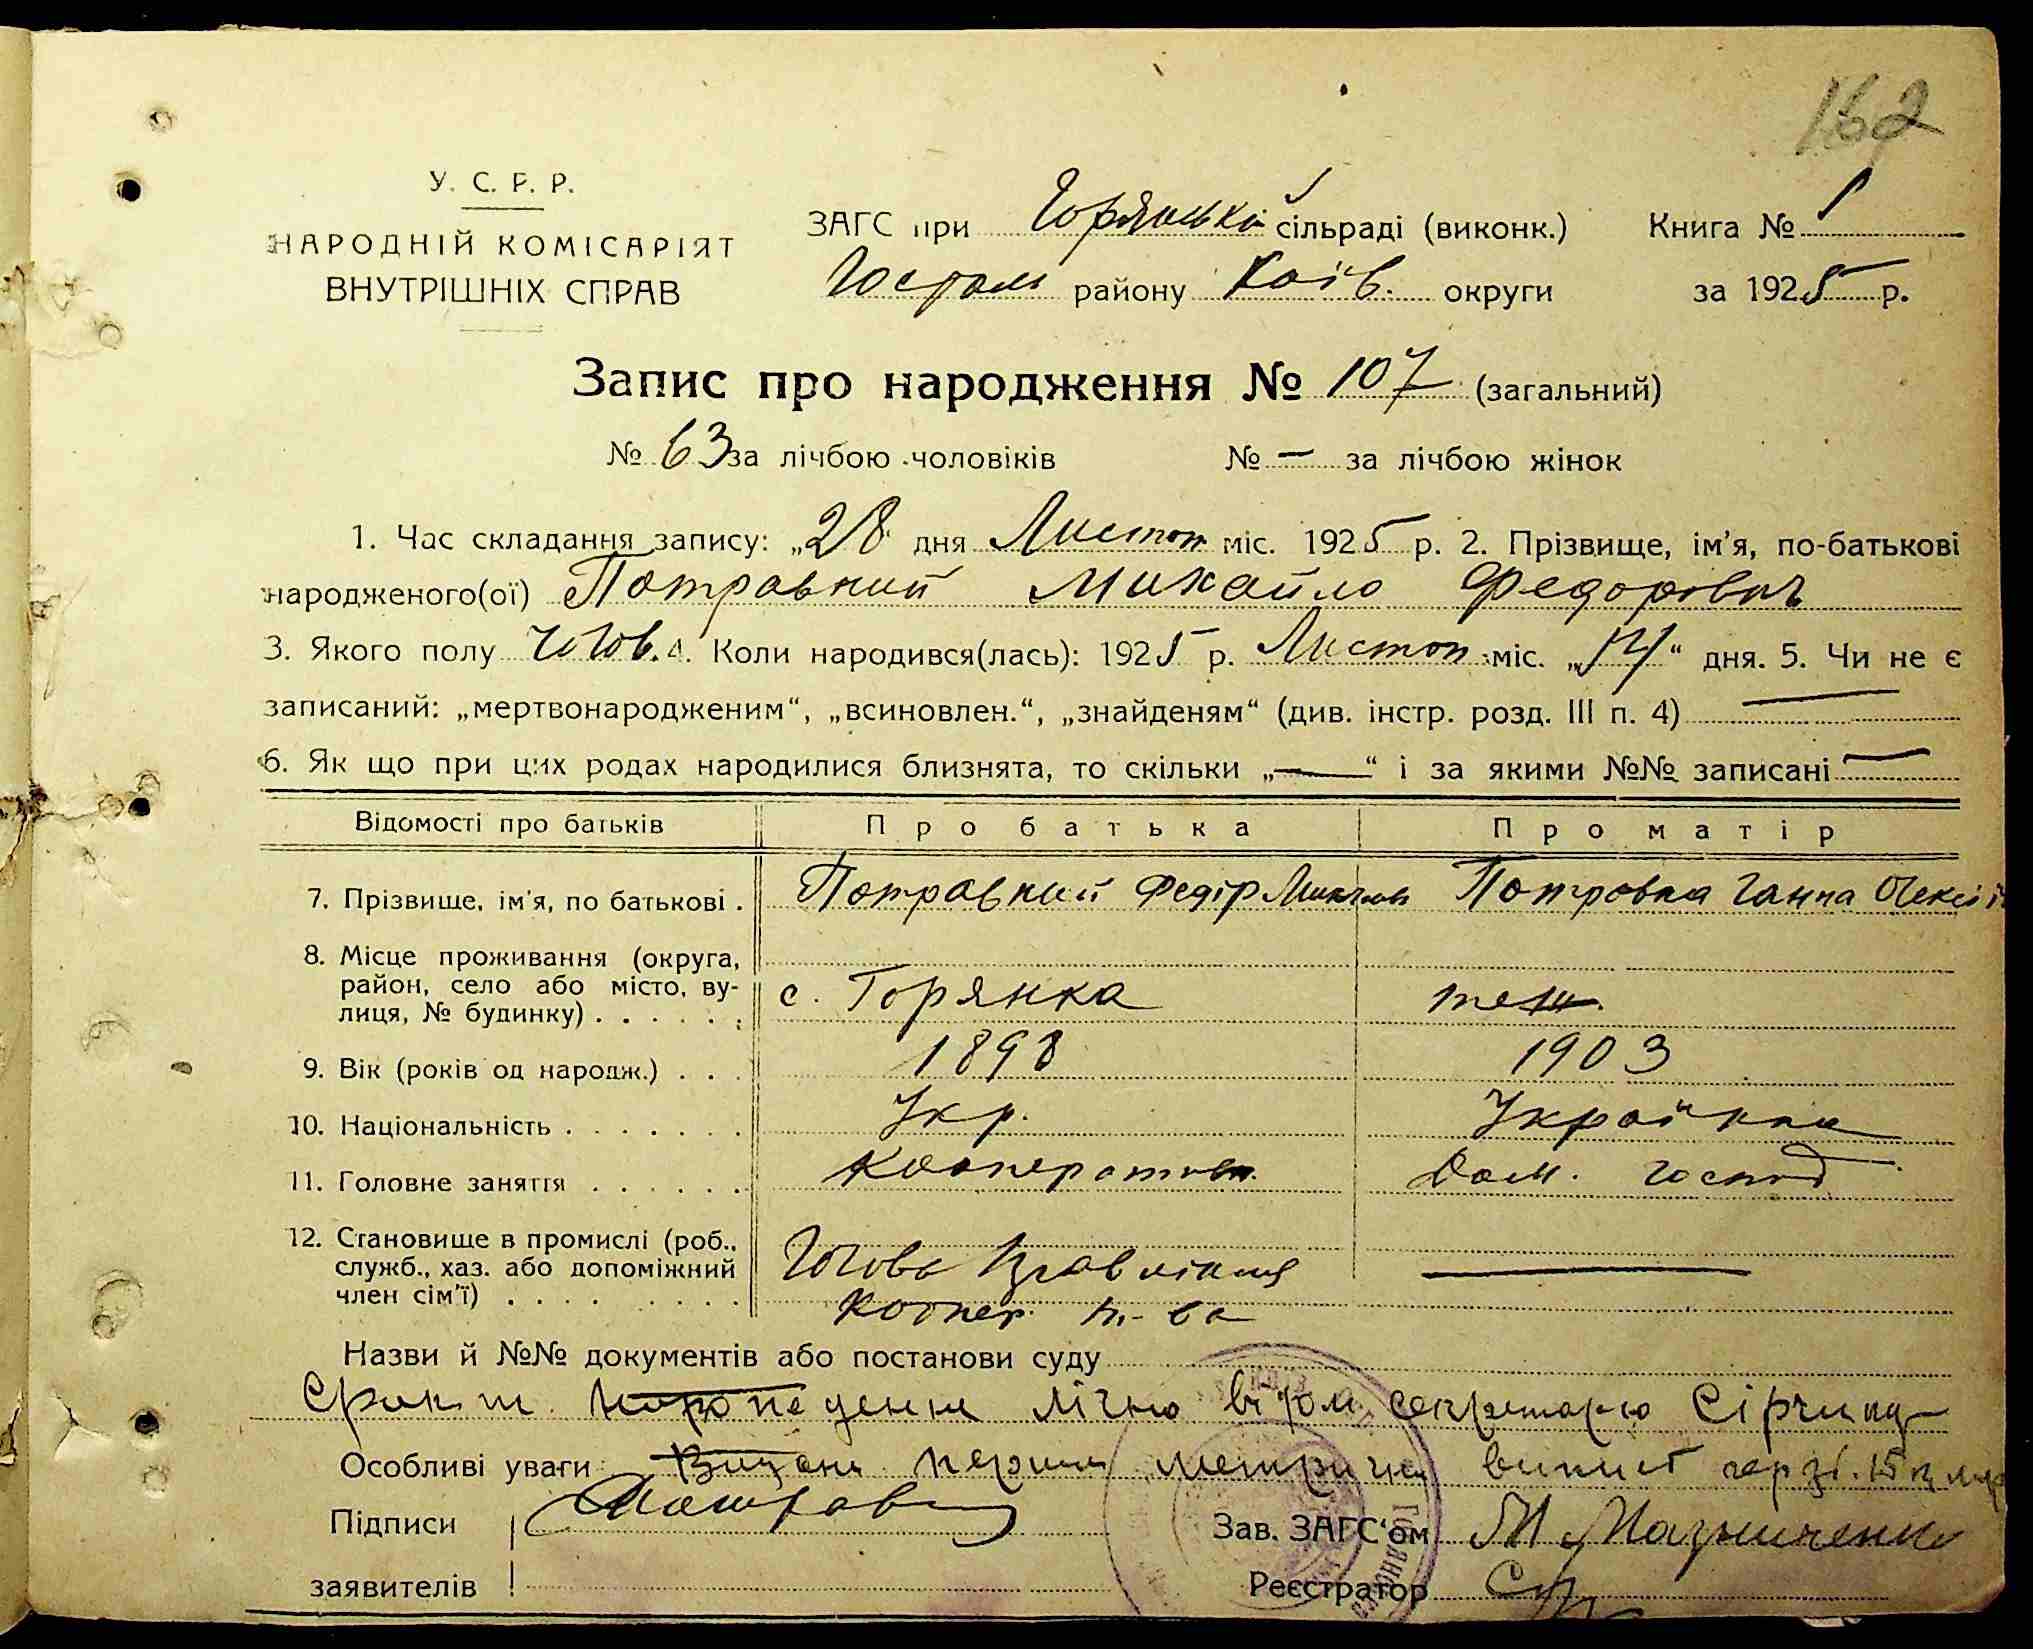 162
У. С. Р. Р.
НАРОДНІЙ КОМІСАРІЯТ
ВНУТРІШНІХ СПРАВ
ЗАГС при Горянській сільраді (виконк.) Книга № 1
Гостом району Київ. округи за 1925 р.
Запис про народження № 107 (загальний)
№ 63 за лічбою чоловіків № — за лічбою жінок
1. Час складання запису: „28 дня Листоп міс. 1925 р. 2. Прізвище, ім’я, по-батькові
народженого(ої) Потравний Михайло Федорович
3. Якого полу чолов. 4. Коли народився(лась): 1925 р. Листоп міс. „ “ дня. 5. Чи не є
записаний: „мертвонародженим“, „всиновлен.“, „знайденям“ (див. інстр. розд. III п. 4) —
6. Як що при цих родах народилися близнята, то скільки „—“ і за якими №№ записані —
Відомості про батьків Про батька Про матір
7. Прізвище, ім’я, по батькові . Потравний Федір Потравна Ганна Олексії
8. Місце проживання (округа,
район, село або місто, ву-
лиця, № будинку) . . . . . . с. Горянка теж
9. Вік (років од народж.) . . . 1898 1903
10. Національність . . . . . . . Укр. Українка
11. Головне заняття . . . . . . Кооператив. Дом. господ
12. Становище в промислі (роб.,
служб., хаз. або допоміжний
член сім’ї) . . . . . . . . . Голова Правління —
Коопер. т-ва
Назви й №№ документів або постанови суду
лічно секретарю
Особливі уваги метричн випис
Підписи Потравн Зав. ЗАГС‘ом М Мазниченко
заявителів Реєстратор